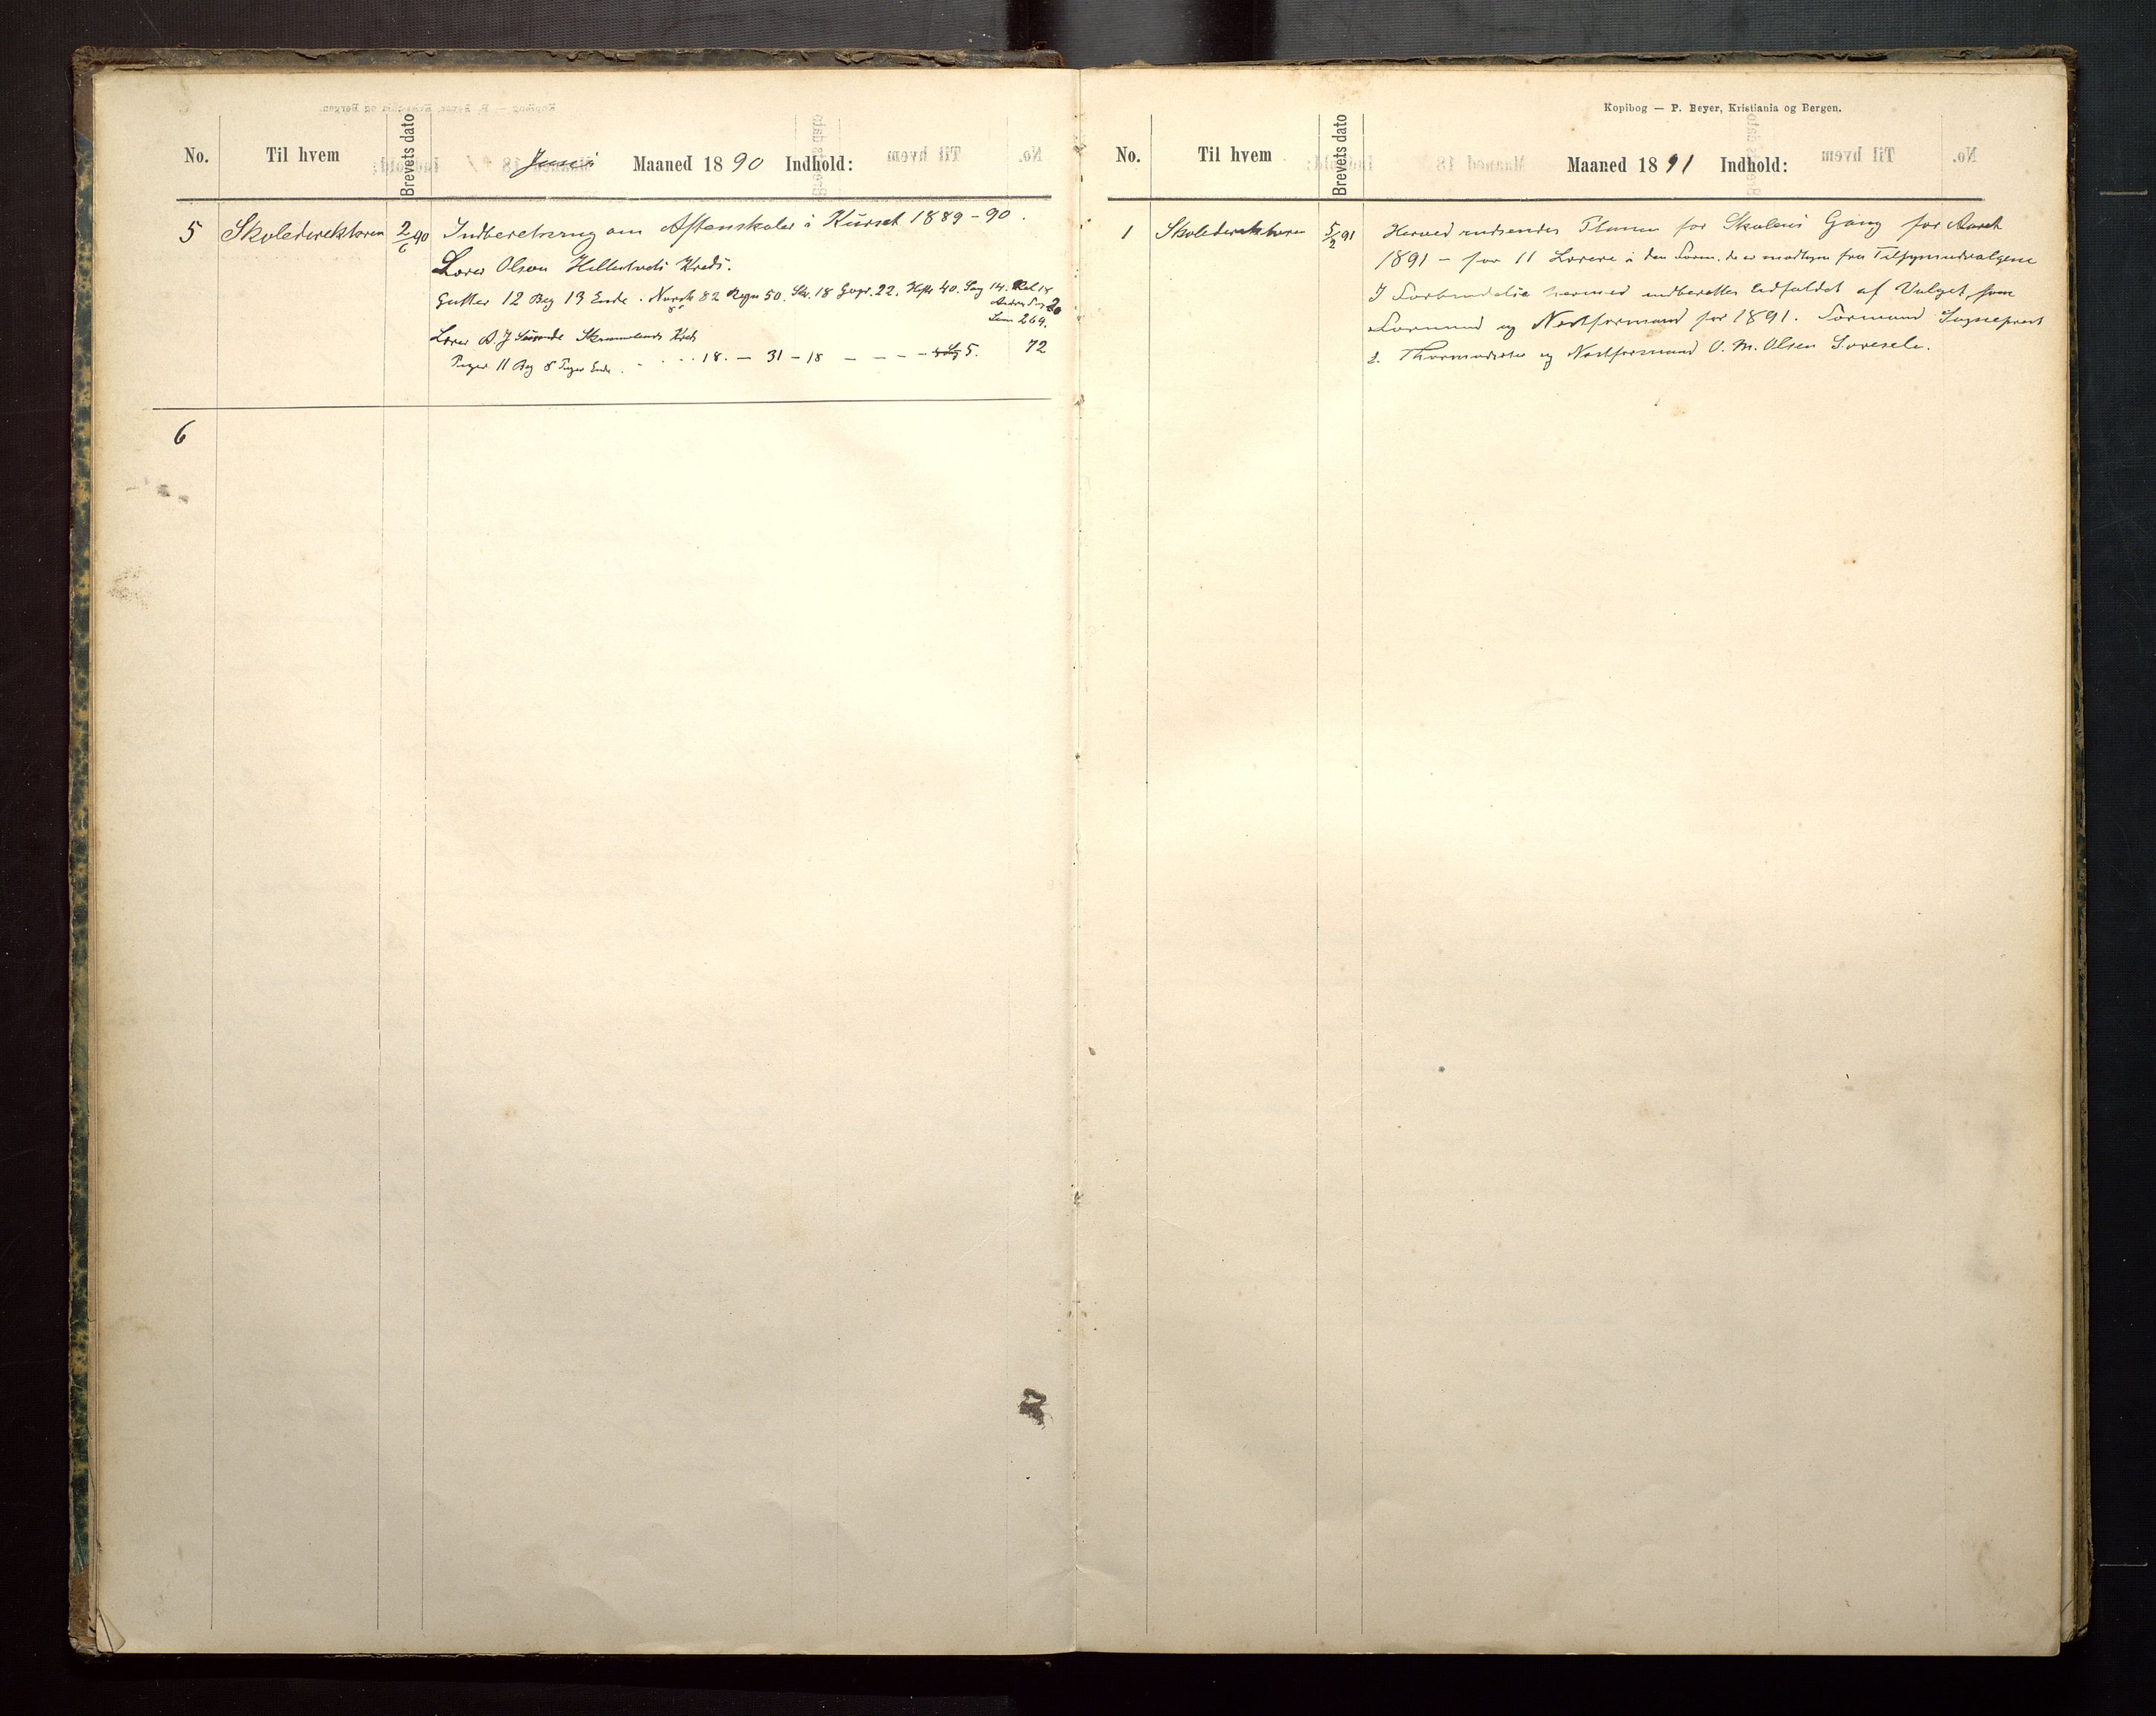 No. Til hvem Brevets dato Juni Maaned 1890 Indhold:
5 Skoledirektøren 2/6 90 Indberetning om Aftenskoler i Kurset 1889-90.
Lærer Olson Hellestveds Kreds.
Gutter 12 Beg 13 Ende. Norsk 82 Regn 50. Skr. 18 Geogr. 22. Hist 40. Sang 14. Rel 18
20
Sum 264.
Lærer Kreds
72
Piger 11 Beg 8 Piger Ende . - - - 18. — 31 – 18 — — — 5.
6
Kopibog — P. Beyer, Kristiania og Bergen.
No. Til hvem Brevets dato Maaned 1891 Indhold:
1 Skoledirektøren 5/2 91 Herved indsendes Planen for Skolens Gang for Aaret
1891 - for 11 Lærere i den Form. de er modtagne fra Tilsynsudvalgene
I Forbindelse hermed indberettes Udfaldet af Valget som
Formand og Næstformand for 1891. Formand Sogneprest
og Næstformand O. M. Olsen